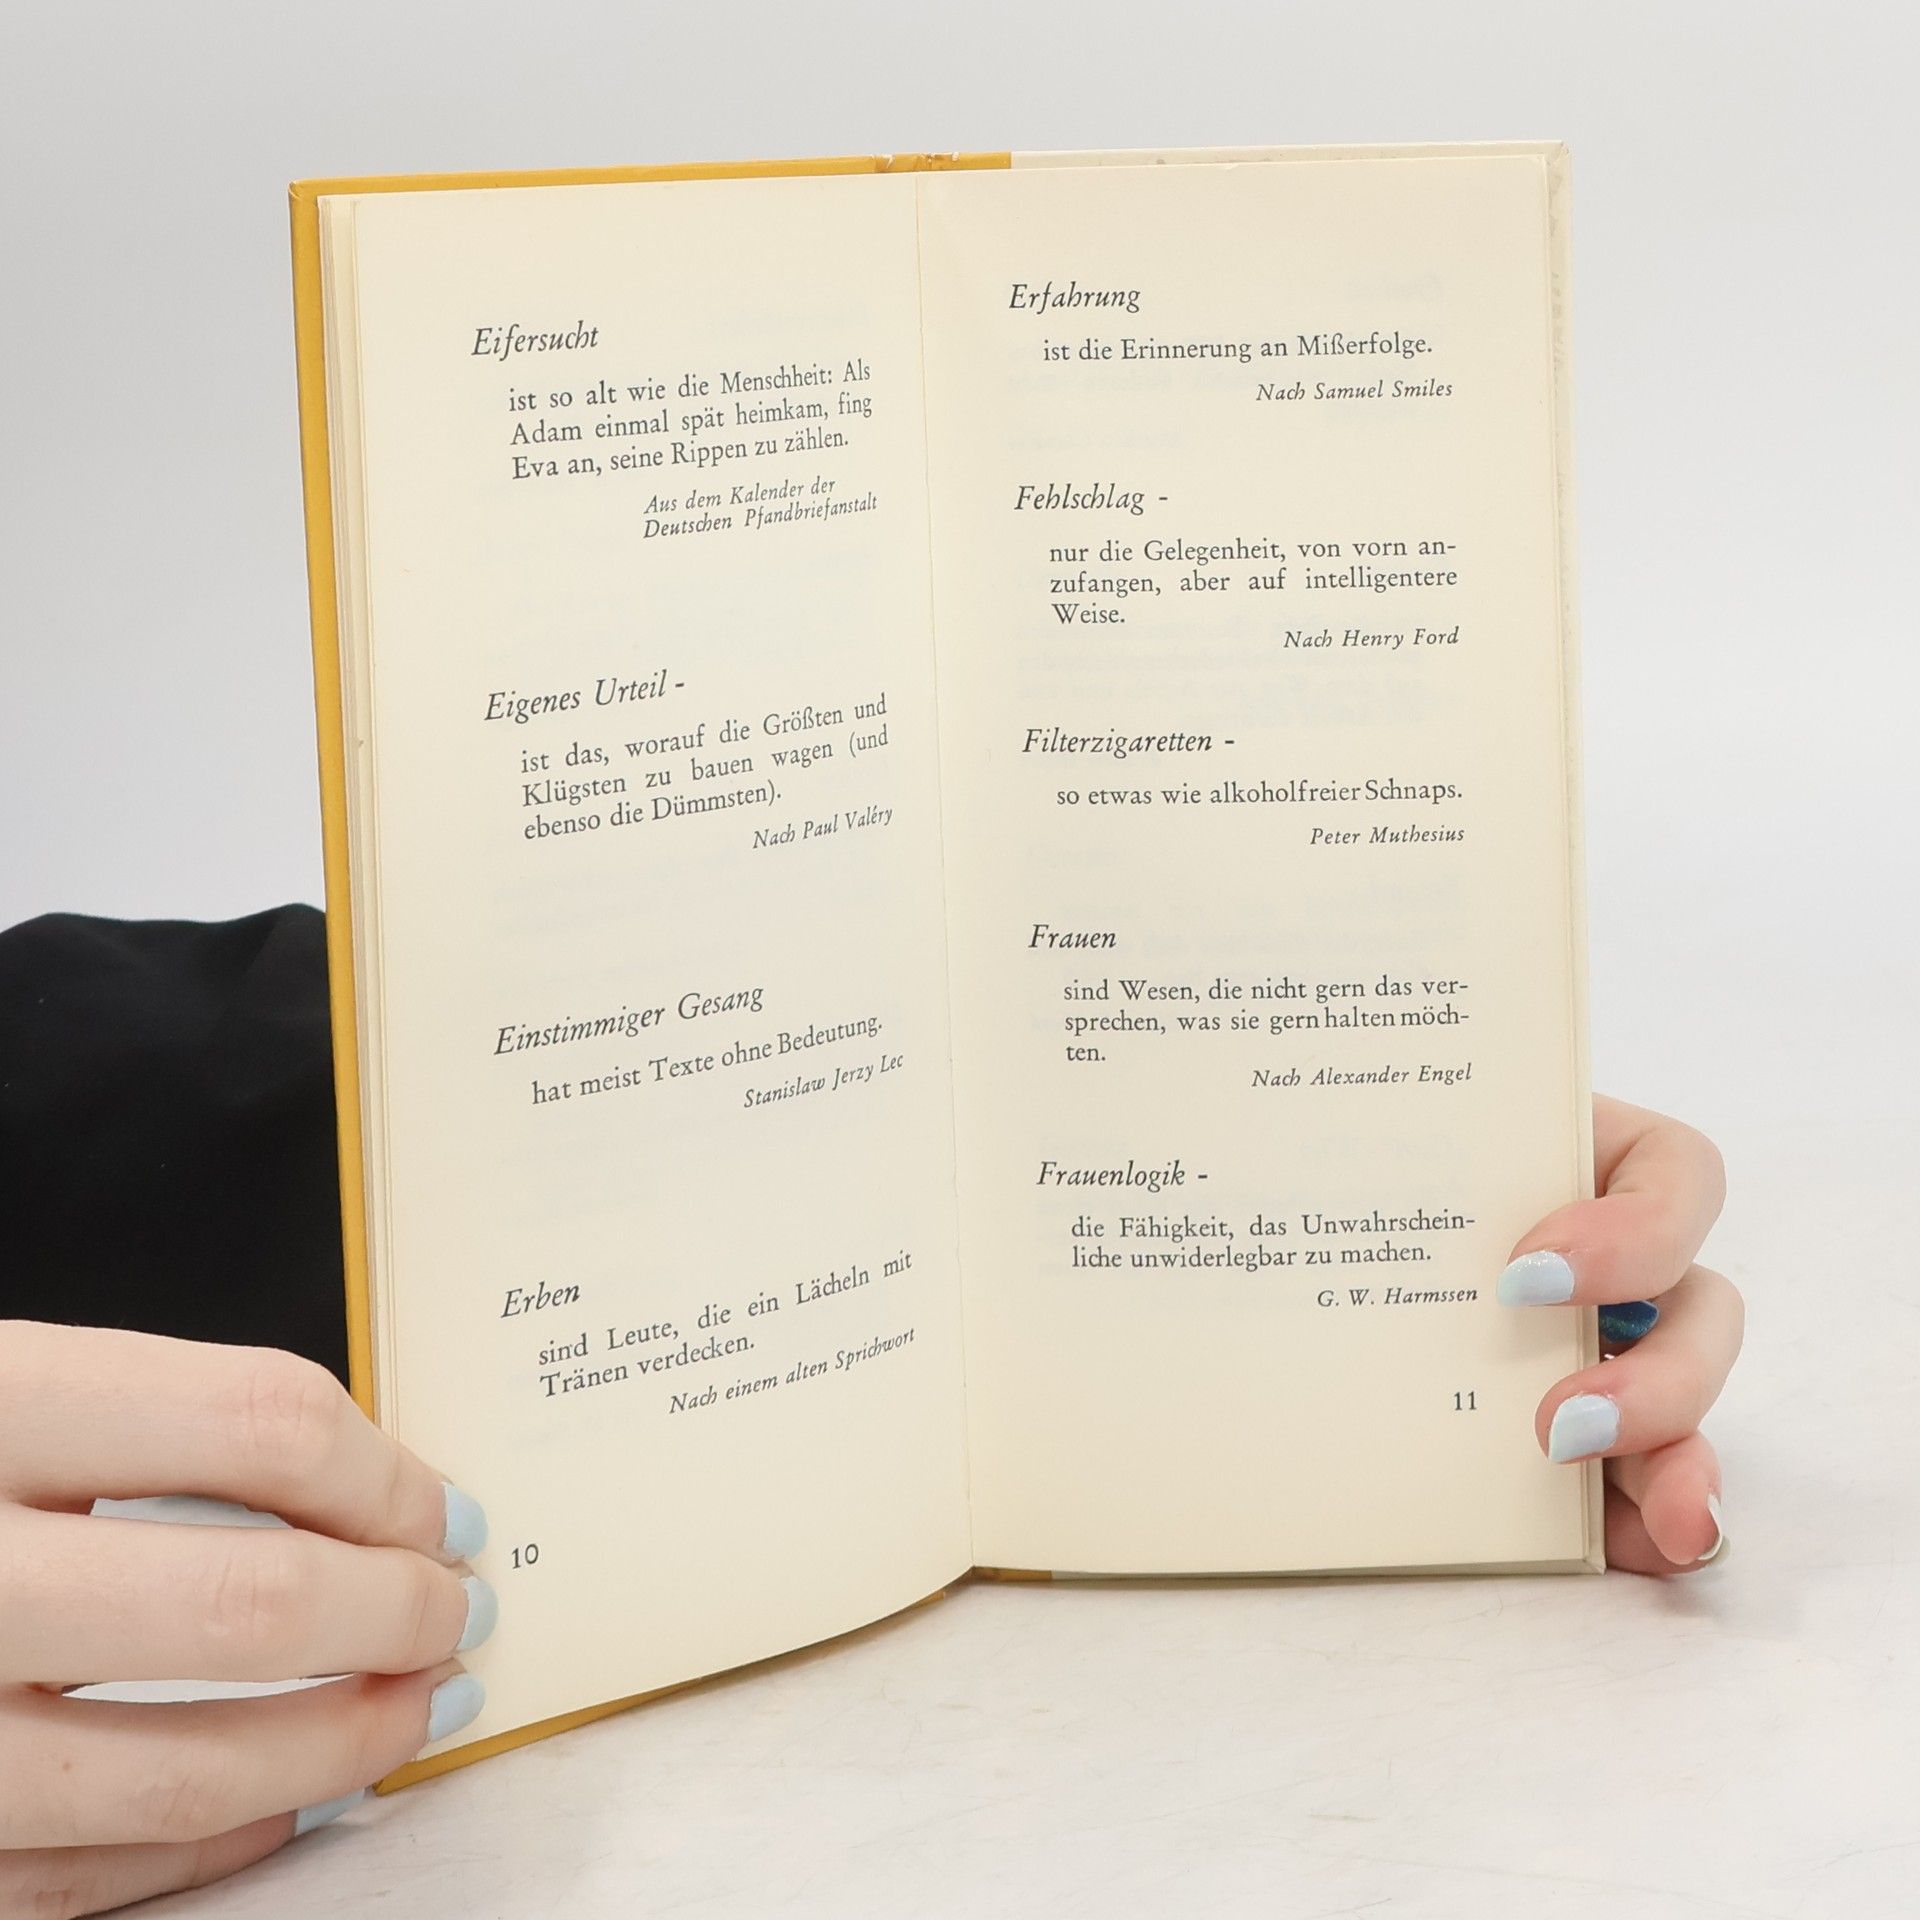 Eifersucht
ist so alt wie die Menschheit: Als
Adam einmal spät heimkam, fing
Eva an, seine Rippen zu zählen.
Aus dem Kalender der
Deutschen Pfandbriefanstalt
Eigenes Urteil -
ist das, worauf die Größten und
Klügsten zu bauen wagen (und
ebenso die Dümmsten).
Nach Paul Valéry
Einstimmiger Gesang
hat meist Texte ohne Bedeutung.
Stanislaw Jerzy Lec
Erben
sind Leute, die ein Lächeln mit
Tränen verdecken.
Nach einem alten Sprichwort
10
Erfahrung
ist die Erinnerung an Mißerfolge.
Nach Samuel Smiles
Fehlschlag -
nur die Gelegenheit, von vorn an-
zufangen, aber auf intelligentere
Weise.
Nach Henry Ford
Filterzigaretten -
so etwas wie alkoholfreier Schnaps.
Peter Muthesius
Frauen
sind Wesen, die nicht gern das ver-
sprechen, was sie gern halten möch-
ten.
Nach Alexander Engel
Frauenlogik -
die Fähigkeit, das Unwahrschein-
liche unwiderlegbar zu machen.
G. W. Harmssen
11